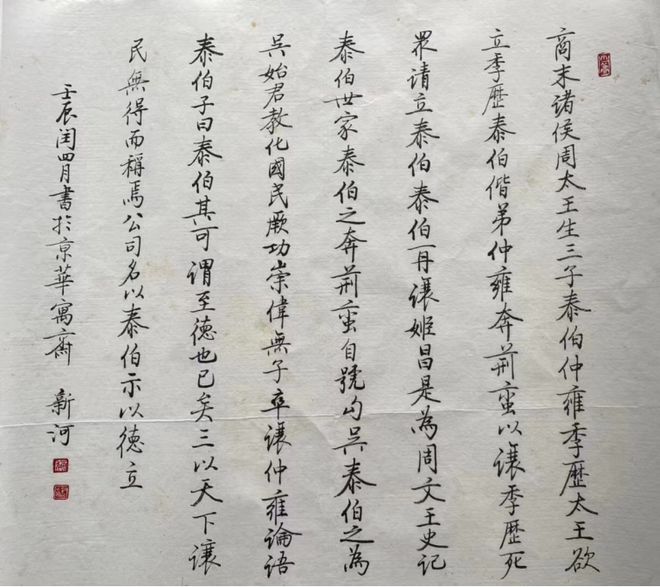 商末諸侯周太王生三子泰伯仲雍季歷太王欲
立季歷泰伯偕弟仲雍奔荊蠻以讓季歷死
眾請立泰伯泰伯再讓姬昌是為周文王史記
泰伯世家泰伯之奔荊蠻自號勾吳泰伯之為
吳始君教化國民厥功崇偉無子卒讓仲雍論語
泰伯子曰泰伯其可謂至德也已矣三以天下讓
民無得而稱焉公司名以泰伯示以德立
壬辰閏四月書於京華寓齋 新河